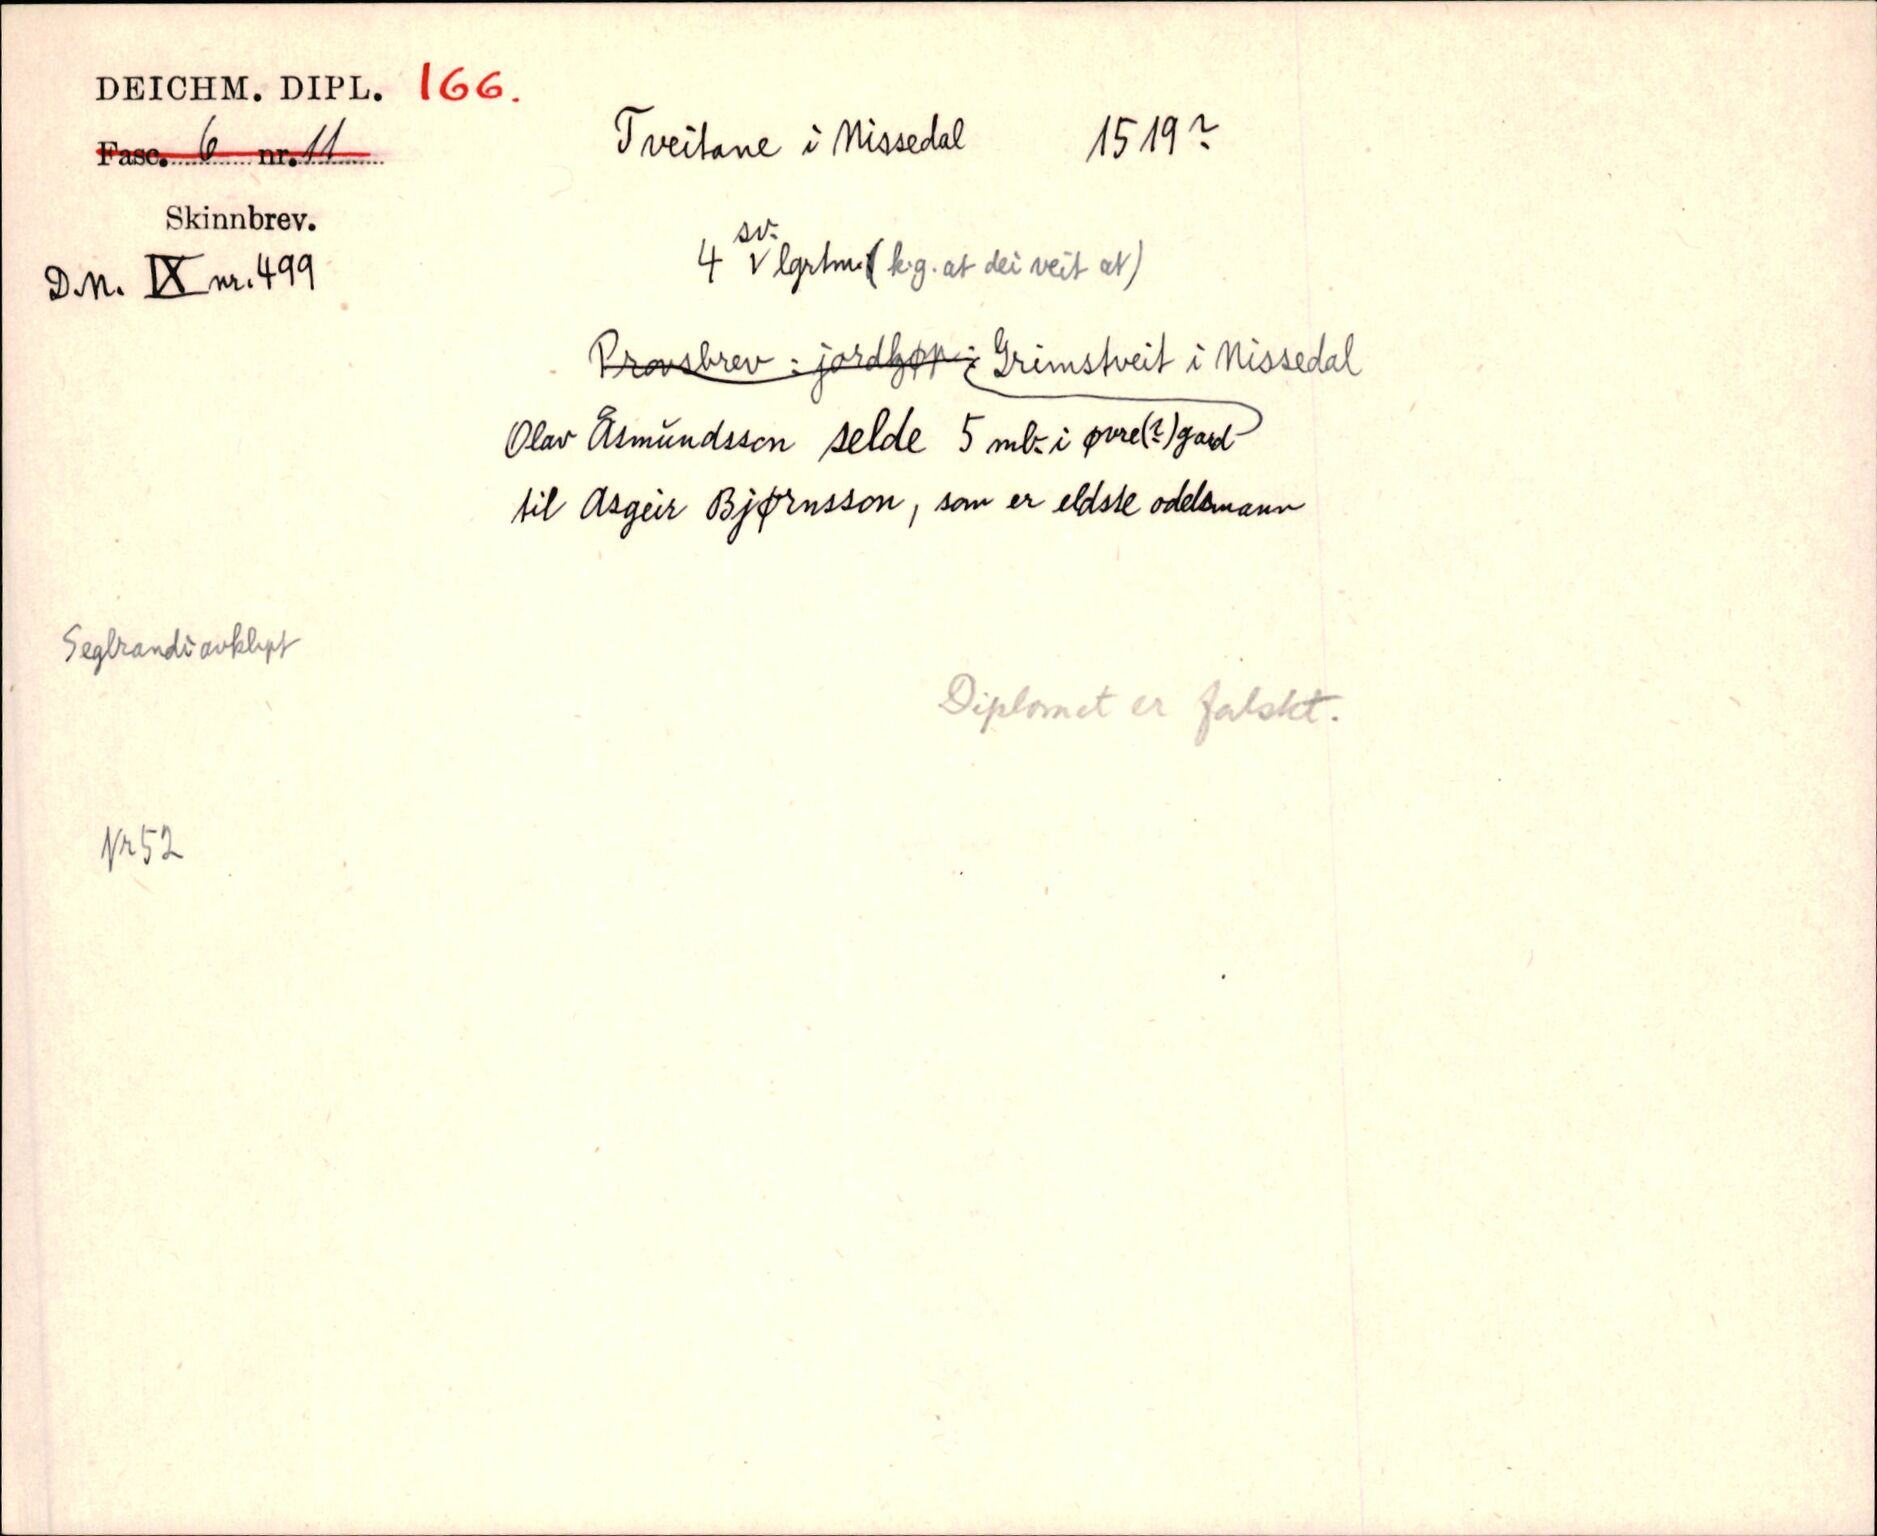 DEICHM. DIPL. 166.
Fasc. 6 nr. 11
Skinnbrev.
D.N. IX nr. 499
Tveitane i Nissedal 1519?
4 sv. lgrtm. (k.g. at dei veit at)
Provsbrev: jordkjøp i Grimstveit i Nissedal
Olav Åsmundsson selde 5 mb. i øvre(?)gard
til Asgeir Bjørnsson, som er eldste odelsmann
Seglrandi avklipt
Diplomet er falskt.
Nr 52